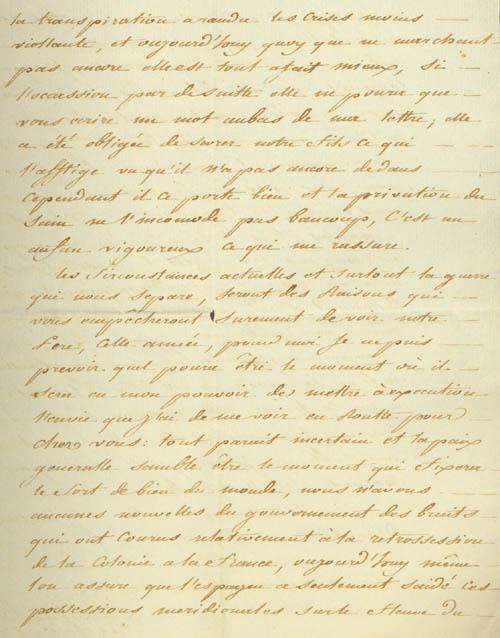 la transpiration a randue les Crises moins
viollante, et aujourd'huy quoy que ne marchant
pas ancore elle est tout afait mieux, si
l'occassion par de suitte elle ne poura que
vous ecrire un mot aubas de ma lettre; elle
a été obligée de sevrer notre fils ce qui
l'afflige vu qu'il n'a pas ancore de dans
Cependant il ce porte bien et la privation du
Suin ne l'incomode pas baucoup, C'est un
anfan vigoureux ce qui me rassure.
les Sirconstances actuelles et surtout la guerre
qui nous separe, seront des Raisons qui
vous empêcheront surement de voir notre
Pere, cette année, pour moi je ne puis
prevoir quel poura être le moment où il
sera en mon pouvoir de mettre à execution
l'envie que j'ai de me voir en Routte pour
chez vous: tout parait incertain et la paix
generalle samble être le moment qui fixera
le sort de bien du monde, nous n'avons
aucunes nouvelles du gouvernement des bruits
qui ont Courus relativement à la retrossession
de la Colonie a la france, aujourd'huy même
l'on assure que l'espagne a seulement saidé ces
possessions meridionales sur le fleuve du